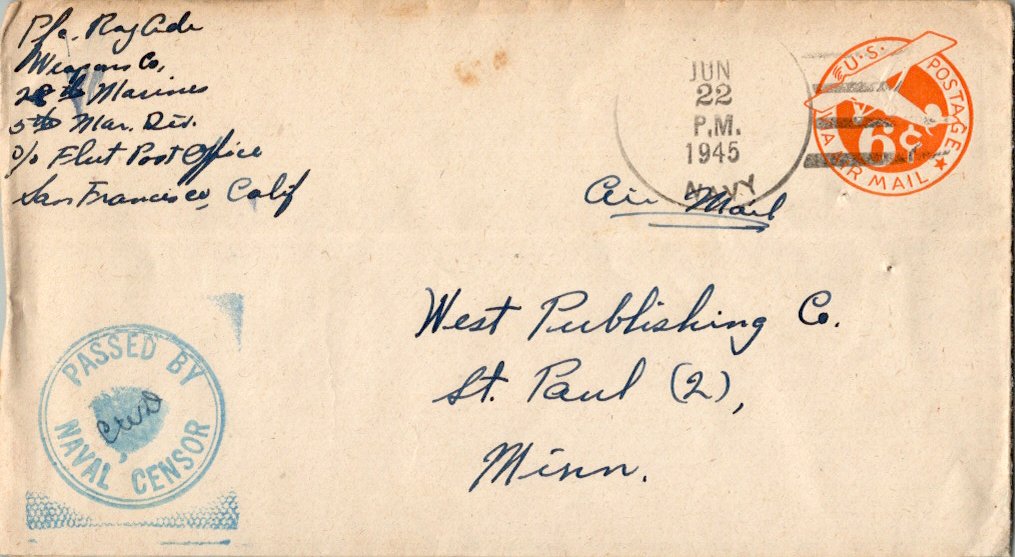 Pfc. Ray
Weapons Co,
28th Marines
5th Mar. Div.
c/o Fleet Post Office
San Francisco, Calif
JUN
22
P.M.
1945
NAVY
U.S. POSTAGE
VIA AIR MAIL
6¢
Air Mail
West Publishing Co.
St. Paul (2),
Minn.
PASSED BY
NAVAL CENSOR